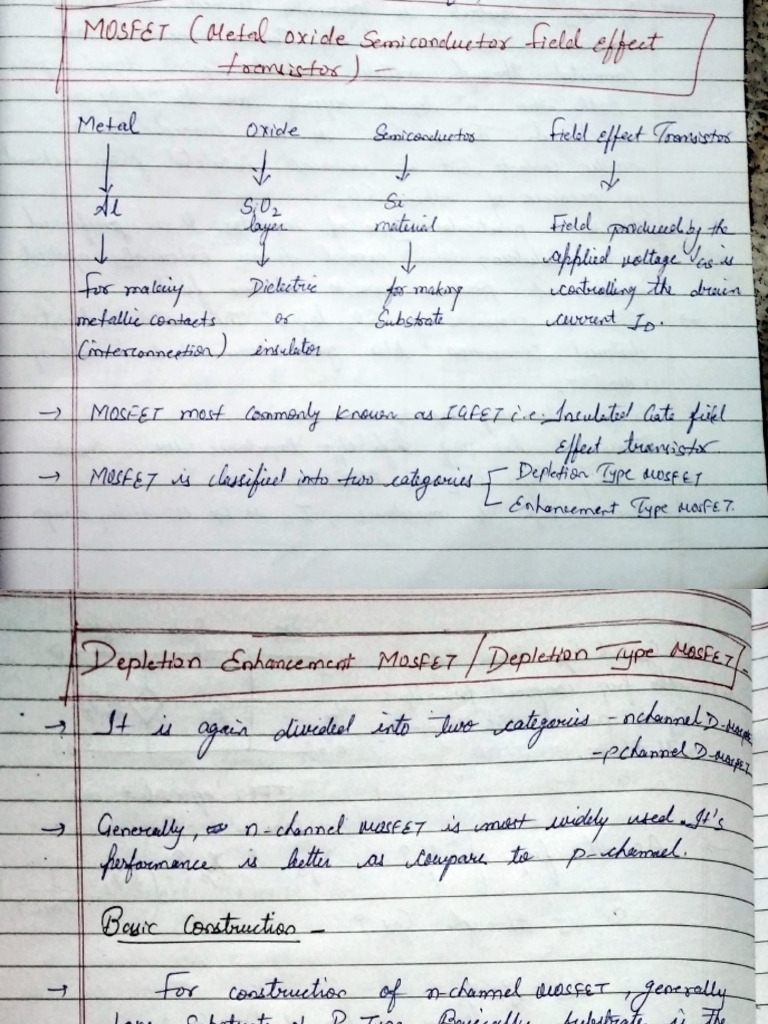 MOSFET (Metal oxide Semiconductor field effect
transistor) -
Metal Oxide Semiconductor Field effect Transistor
↓ ↓ ↓ ↓
Al SiO2 Si Field produced by the
layer material applied voltage VGS is
↓ ↓ ↓ controlling the drain
For making Dielectric for making current ID.
metallic contacts or Substrate
(interconnection) insulator
→ MOSFET most commonly known as IGFET i.e. Insulated Gate field
effect transistor.
→ MOSFET is classified into two categories Depletion Type MOSFET
Enhancement Type MOSFET.
Depletion Enhancement MOSFET / Depletion Type MOSFET -
→ It is again divided into two categories - nchannel D-MOSFET
- pchannel D-MOSFET
→ Generally, n-channel MOSFET is most widely used. It's
performance is better as compare to p-channel.
Basic Construction -
→ For construction of n-channel MOSFET, generally
Substrate of P-Type. Basically substrate is the